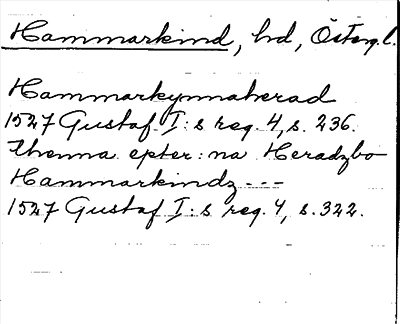 Hammarkind, hd, Östergl.
Hammarkynnaherad
1527 Gustaf I:s reg. 4, s. 236.
thenna epter:na Heradzbo
Hammarkindz ---
1527 Gustaf I:s reg. 4, s. 322.